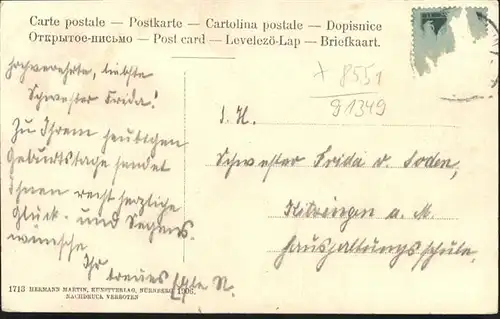 Carte postale — Postkarte — Cartolina postale — Dopisnice
Открытое-письмо — Post card — Levelezö-Lap — Briefkaart.
Hochverehrte, liebste
Schwester Frida!
Zu Ihrem heutigen
Geburtstage sendet
Ihnen recht herzliche
Glück- und Segens-
wünsche
Ihr treues
+ 8551
91349
S. H.
Schwester Frida v. Soden,
Kitzingen a. M.
Haushaltungsschule.
1713 HERMANN MARTIN, KUNSTVERLAG, NÜRNBERG 1906.
NACHDRUCK VERBOTEN